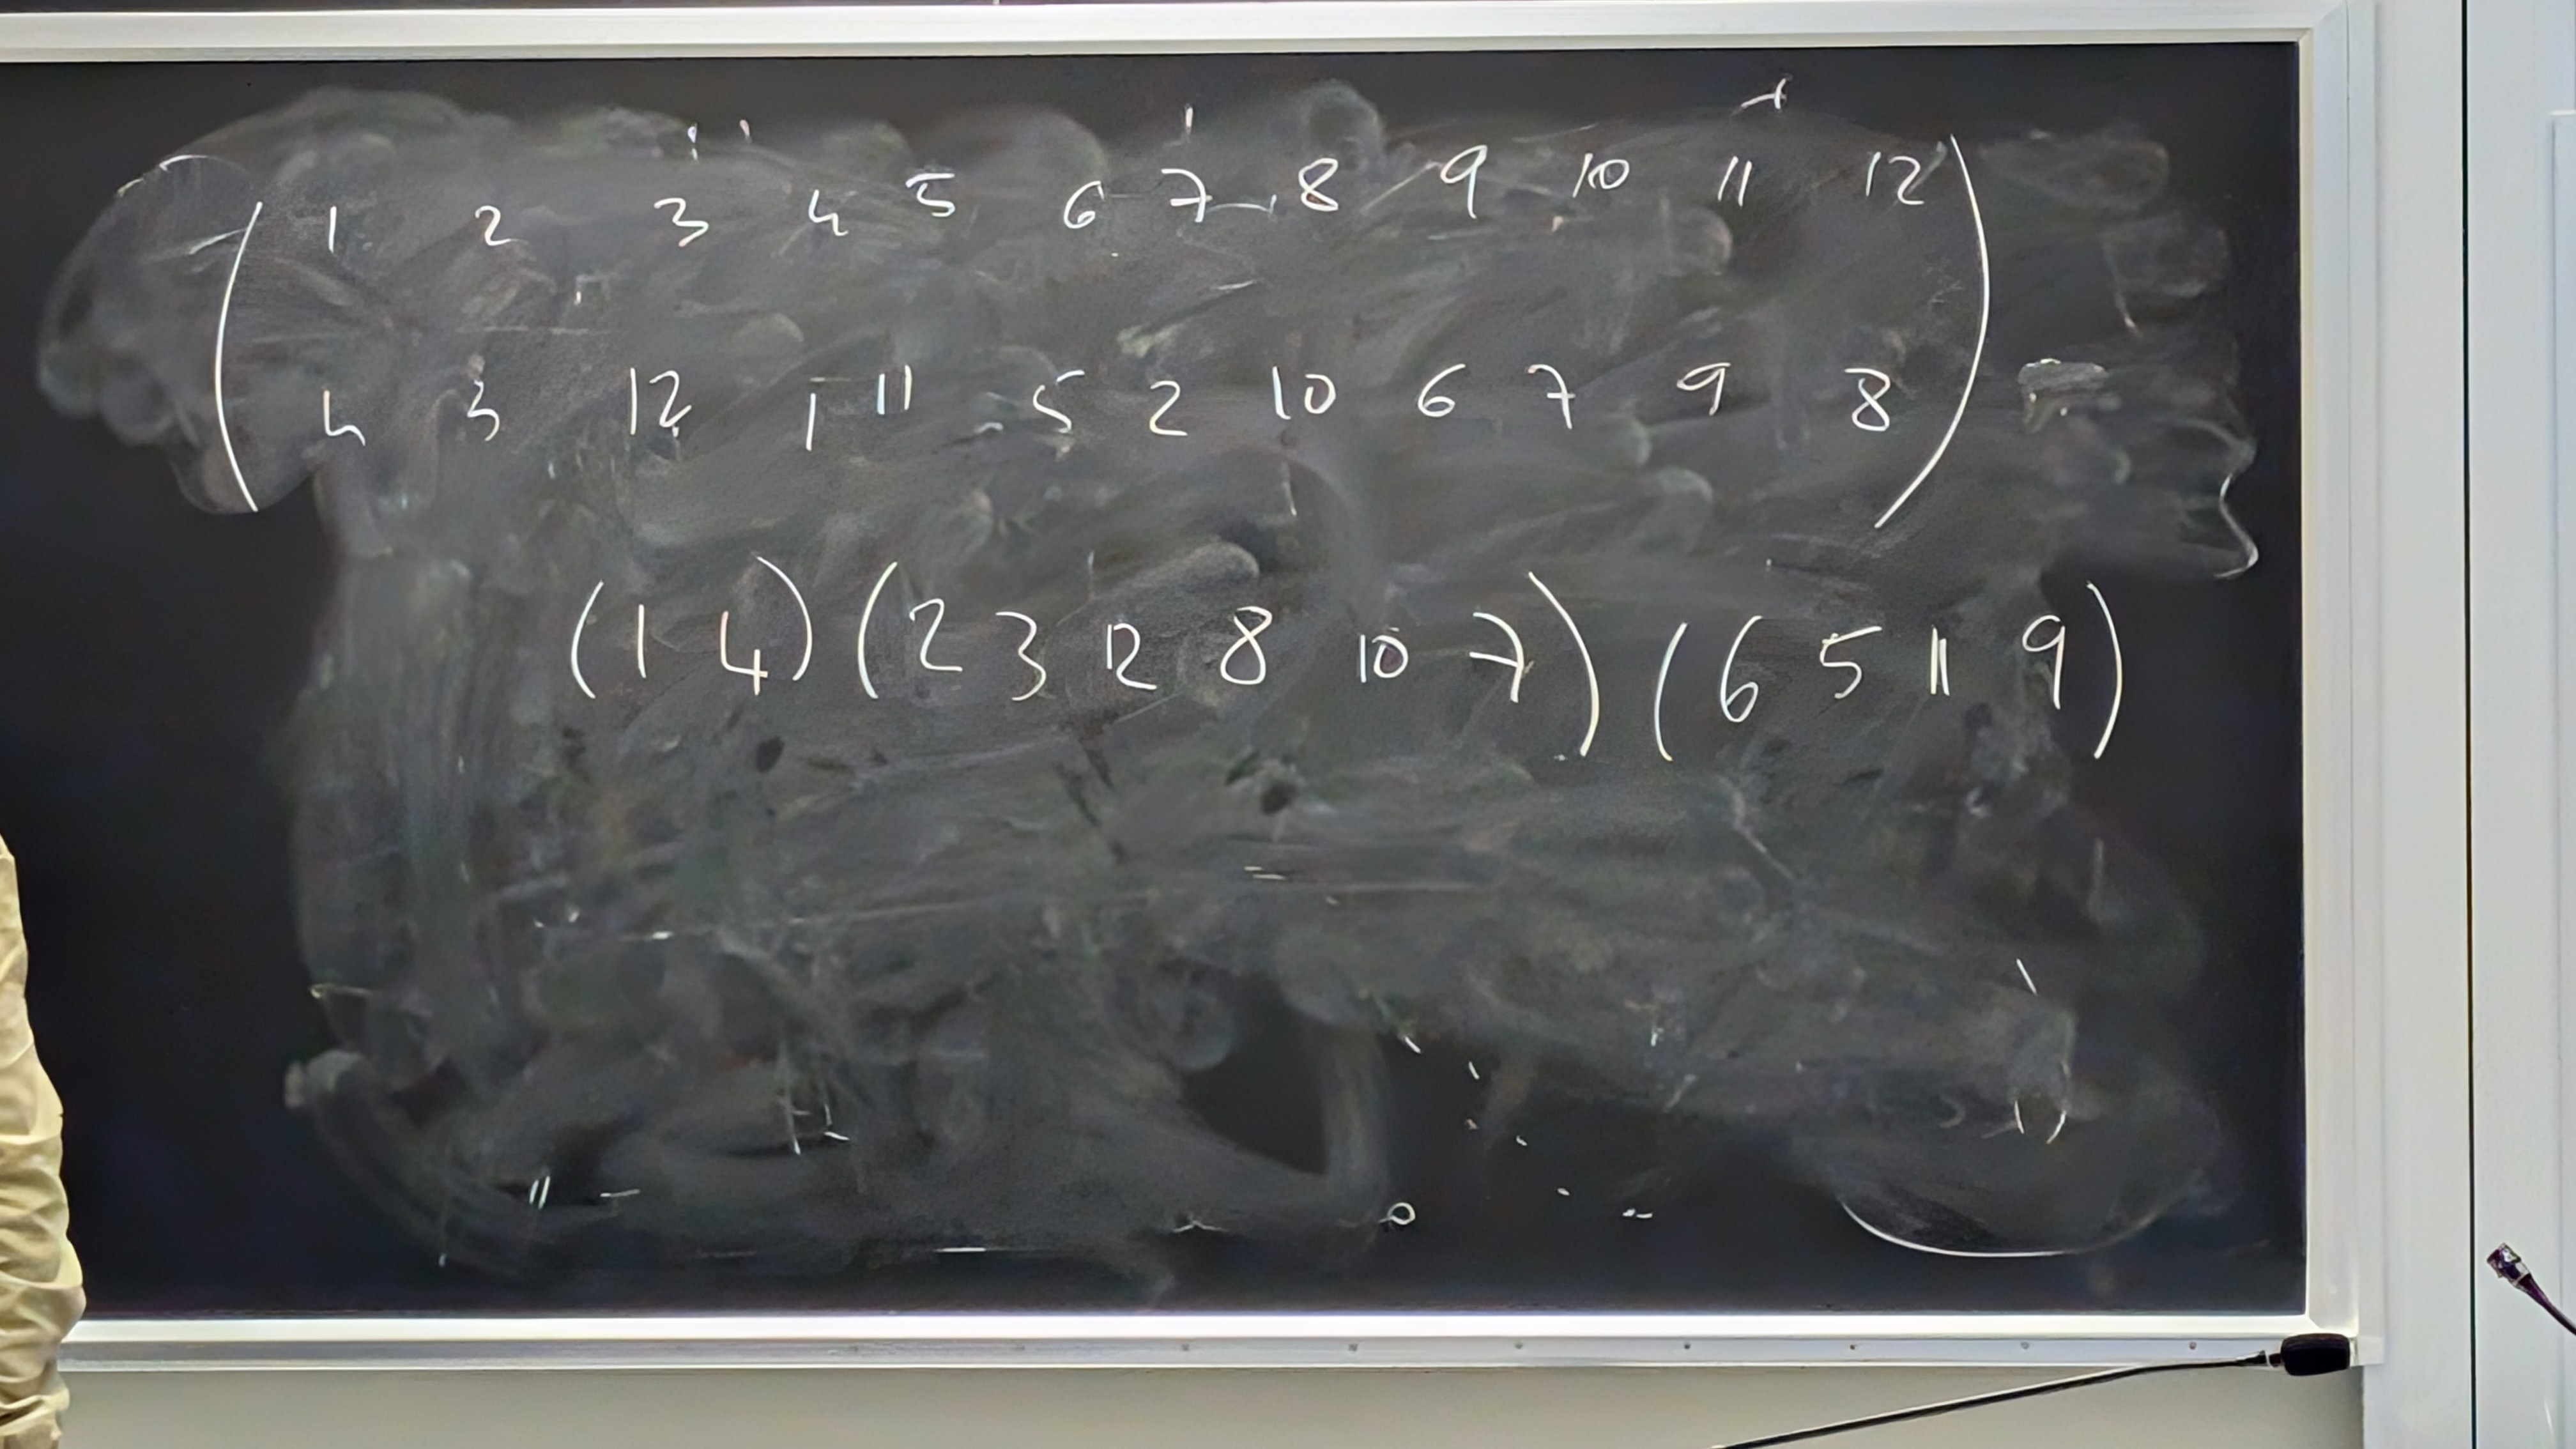 ( 1 2 3 4 5 6 7 8 9 10 11 12 )
( 4 3 12 1 11 5 2 10 6 7 9 8 )
(1 4)(2 3 12 8 10 7)(6 5 11 9)